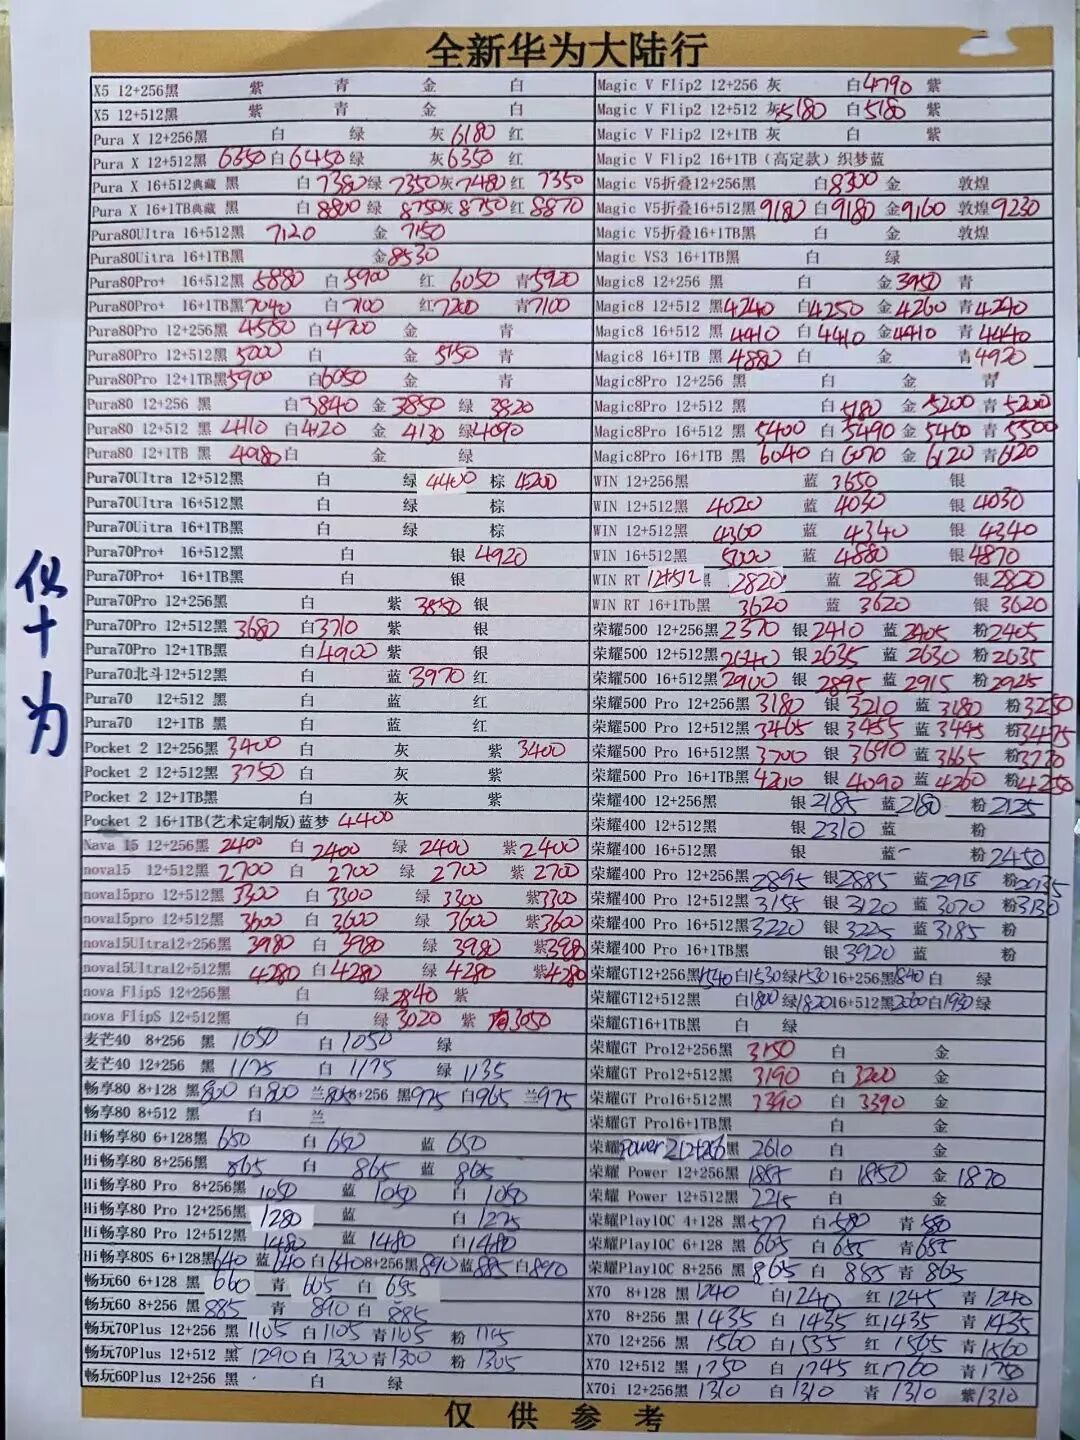 全新华为大陆行
X5 12+256黑 紫 青 金 白
X5 12+512黑 紫 青 金 白
Pura X 12+256黑 白 绿 灰 6180 红
Pura X 12+512黑 6350 白 6450 绿 灰 6350 红
Pura X 16+512典藏 黑 白 7380 绿 7350 灰 7480 红 7350
Pura X 16+1TB典藏 黑 白 8800 绿 8750 灰 8750 红 8870
Pura80Ultra 16+512黑 7120 金 7150
Pura80Uitra 16+1TB黑 金 8530
Pura80Pro+ 16+512黑 5880 白 5900 红 6050 青 5920
Pura80Pro+ 16+1TB黑 7040 白 7100 红 7200 青 7100
Pura80Pro 12+256黑 4580 白 4700 金 青
Pura80Pro 12+512黑 5000 白 金 5150 青
Pura80Pro 12+1TB黑 5900 白 6050 金 青
Pura80 12+256 黑 白 3840 金 3850 绿 3820
Pura80 12+512 黑 4110 白 4120 金 4130 绿 4090
Pura80 12+1TB 黑 白 金 绿
Pura70Ultra 12+512黑 白 绿 4400 棕 4200
Pura70Ultra 16+512黑 白 绿 棕
Pura70Uitra 16+1TB黑 白 绿 棕
Pura70Pro+ 16+512黑 白 银 4920
Pura70Pro+ 16+1TB黑 白 银
Pura70Pro 12+256黑 白 紫 3850 银
Pura70Pro 12+512黑 3680 白 3710 紫 银
Pura70Pro 12+1TB黑 白 4900 紫 银
Pura70北斗12+512黑 白 蓝 3970 红
Pura70 12+512 黑 白 蓝 红
Pura70 12+1TB 黑 白 蓝 红
Pocket 2 12+256黑 3400 白 灰 紫 3400
Pocket 2 12+512黑 3750 白 灰 紫
Pocket 2 12+1TB黑 白 灰 紫
Pocket 2 16+1TB(艺术定制版)蓝梦 4400
Nava 15 12+256黑 2400 白 2400 绿 2400 紫 2400
nova15 12+512黑 2700 白 2700 绿 2700 紫 2700
nova15pro 12+512黑 3300 白 3300 绿 3300 紫 3300
nova15pro 12+512黑 3600 白 3600 绿 3600 紫 3600
nova15Ultra12+256黑 3980 白 3980 绿 3980 紫 3980
nova15Ultra12+512黑 4280 白 4280 绿 4280 紫 4280
nova FlipS 12+256黑 白 绿 2840 紫
nova FlipS 12+512黑 白 绿 3020 紫 3050
麦芒40 8+256 黑 1050 白 1050 绿
麦芒40 12+256 黑 1175 白 1175 绿 1135
畅享80 8+128 黑 800 白 800 兰 8+256 黑 975 白 965 兰 975
畅享80 8+512 黑 白 兰
Hi畅享80 6+128黑 650 白 650 蓝 650
Hi畅享80 8+256黑 865 白 865 蓝 865
Hi畅享80 Pro 8+256黑 1050 蓝 1050 白 1050
Hi畅享80 Pro 12+256黑 1280 蓝 白 1275
Hi畅享80 Pro 12+512黑 1480 蓝 1480 白 1480
Hi畅享80S 6+128黑 640 蓝 640 白 640 8+256黑 890 蓝 885 白 890
畅玩60 6+128 黑 660 青 605 白 655
畅玩60 8+256 黑 885 青 890 白 885
畅玩70Plus 12+256 黑 1105 白 1105 青 1105 粉 1105
畅玩70Plus 12+512 黑 1290 白 1300 青 1300 粉 1305
畅玩60Plus 12+256 黑 白 绿
Magic V Flip2 12+256 灰 白 4790 紫
Magic V Flip2 12+512 灰 5180 白 5180 紫
Magic V Flip2 12+1TB 灰 白 紫
Magic V Flip2 16+1TB（高定款）织梦蓝
Magic V5折叠12+256黑 白 8300 金 敦煌
Magic V5折叠16+512黑 9180 白 9180 金 9160 敦煌 9230
Magic V5折叠16+1TB黑 白 金 敦煌
Magic VS3 16+1TB黑 白 绿
Magic8 12+256 黑 白 金 3950 青
Magic8 12+512 黑 4240 白 4250 金 4260 青 4240
Magic8 16+512 黑 4410 白 4410 金 4410 青 4440
Magic8 16+1TB 黑 4880 白 金 青 4920
Magic8Pro 12+256 黑 白 金 青
Magic8Pro 12+512 黑 白 5180 金 5200 青 5200
Magic8Pro 16+512 黑 5400 白 5490 金 5400 青 5500
Magic8Pro 16+1TB 黑 6040 白 6070 金 6120 青 6120
WIN 12+256黑 蓝 3650 银
WIN 12+512黑 4020 蓝 4030 银 4030
WIN 12+512黑 4300 蓝 4340 银 4340
WIN 16+512黑 5000 蓝 4880 银 4870
WIN RT 12+512黑 2820 蓝 2820 银 2820
WIN RT 16+1Tb黑 3620 蓝 3620 银 3620
荣耀500 12+256黑 2370 银 2410 蓝 2405 粉 2405
荣耀500 12+512黑 2640 银 2635 蓝 2630 粉 2635
荣耀500 16+512黑 2900 银 2895 蓝 2915 粉 2925
荣耀500 Pro 12+256黑 3180 银 3210 蓝 3180 粉 3250
荣耀500 Pro 12+512黑 3465 银 3455 蓝 3445 粉 3475
荣耀500 Pro 16+512黑 3700 银 3690 蓝 3665 粉 3720
荣耀500 Pro 16+1TB黑 4200 银 4090 蓝 4260 粉 4250
荣耀400 12+256黑 银 2185 蓝 2180 粉 2125
荣耀400 12+512黑 银 2310 蓝 粉
荣耀400 16+512黑 银 蓝 粉 2450
荣耀400 Pro 12+256黑 2895 银 2885 蓝 2915 粉
荣耀400 Pro 12+512黑 3155 银 3120 蓝 3070 粉 3130
荣耀400 Pro 16+512黑 3220 银 3225 蓝 3185 粉
荣耀400 Pro 16+1TB黑 银 3920 蓝 粉
荣耀GT12+256黑 1540 白 1530 绿 1530 16+256黑 1840 白 绿
荣耀GT12+512黑 白 1800 绿 1820 16+512黑 白 1930 绿
荣耀GT16+1TB黑 白 绿
荣耀GT Pro12+256黑 3150 白 金
荣耀GT Pro12+512黑 3190 白 3200 金
荣耀GT Pro16+512黑 3390 白 3390 金
荣耀GT Pro16+1TB黑 白 金
荣耀power2 12+256黑 2610 白 金
荣耀 Power 12+256黑 1885 白 1850 金 1870
荣耀 Power 12+512黑 2215 白 金
荣耀Play10C 4+128 黑 577 白 580 青 580
荣耀Play10C 6+128 黑 665 白 655 青 655
荣耀Play10C 8+256 黑 865 白 885 青 865
X70 8+128 黑 1240 白 1240 红 1245 青 1240
X70 8+256 黑 1435 白 1435 红 1435 青 1435
X70 12+256 黑 1560 白 1555 红 1565 青 1560
X70 12+512 黑 1750 白 1745 红 1760 青 1750
X70i 12+256黑 1310 白 1310 青 1310 紫 1310
仅供参考